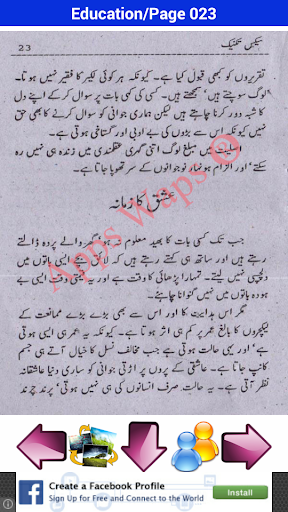 Education/Page 023
23
سیکس تکنیک
تقریروں کو کبھی قبول کیا ہے۔ کیونکہ ہر کوئی لکیر کا فقیر نہیں ہوتا۔
لوگ سوچتے ہیں' سمجھتے ہیں۔ کسی کی کسی بات پر سوال کر کے اپنے دل
کا شبہ دور کرنا چاہتے ہیں لیکن ہماری جوانی کو سوال کرنے کا بھی حق
نہیں کیونکہ اس سے بڑوں کی بے ادبی اور گستاخی ہوتی ہے۔
اصلیت میں مبلغ لوگ اتنی گہری عقلمندی میں زندہ ہی نہیں رہ
سکتے' اور الزام ہونہار نوجوانوں کے سر تھوپا جاتا ہے۔
عشق کا زمانہ
جب تک کسی بات کا بھید معلوم نہ ہو' گھر والے پردہ ڈالتے
رہتے ہیں اور ساتھ ہی کہتے رہتے ہیں کہ لائق بچے ایسی باتوں میں
دلچسپی نہیں لیتے۔ تمہارا پڑھائی کا وقت ہے اور یہ قیمتی وقت ایسی بے
ہودہ باتوں میں نہیں گنوانا چاہئے۔
مگر اس ہدایت کا اور اس سے بھی بڑے بڑے ممانعت کے
لیکچروں کا بالغ عمر پر کم ہی اثر ہوتا ہے۔ کیونکہ یہ عمر ہی ایسی ہوتی
ہے' اور یہی حالت ہوتی ہے جب مخالف نسل کا خیال آتے ہی جسم
کانپ جاتا ہے۔ عاشقی کے پروں پر اڑتی جوانی کو ساری دنیا عاشقانہ
نظر آتی ہے۔ یہ حالت صرف انسانوں کی ہی نہیں ہوتی' پرند چرند
Apps Waps ®
Create a Facebook Profile
Sign Up for Free and Connect to the World
Install